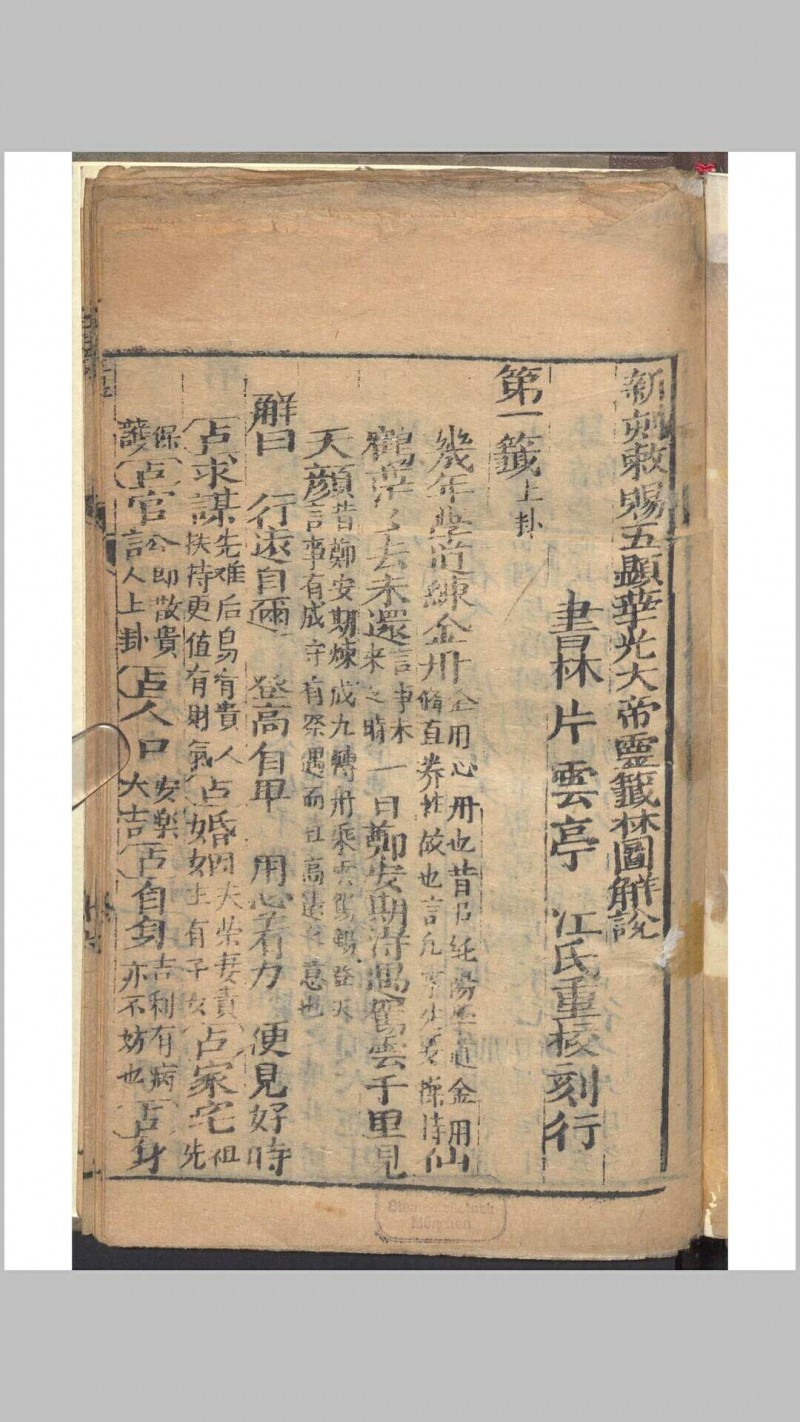 新刻敕賜五顯華光大帝靈籤林圖解說
書林片雲亭 江氏重梓刻行
第一籤上卦
幾年學道練金丹 金用心丹也昔呂純陽 道金用 修真养性故也言凡 仙
鶴 去未還 言事未來之時 一日鄭安期 駕雲千里見
天顔 昔鄭安期煉成九轉丹乘 駕鶴登天 言事有成守有祭遇而 高遠 意也
解曰 行遠自邇 登高自卑 用心着力 便見好時
占求謀 先难后易有貴人扶持更值有財氣 占婚姻 大榮妻貴生有子女 占家宅 祖先
保護 占官訟 即散貴人上卦 占人口 安樂大吉 占自身 吉利有病亦不妨也 占身
Staatsbibliothek
München